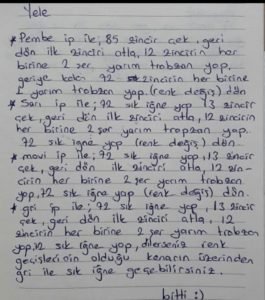 Yele
* Pembe ip ile; 85 zincir çek, geri
dön ilk zinciri atla, 12 zincirin her
birine 2 şer yarım trabzan yap,
geriye kalan 72 zincirin her birine
yarım trabzan yap. (renk değiş) dön
* Sarı ip ile; 72 sık iğne yap 13 zincir
çek, geri dön ilk zinciri atla, 12 zincirin
her birine 2 şer yarım trapzan yap.
72 sık iğne yap (renk değiş) dön
* mavi ip ile; 72 sık iğne yap, 13 zincir
çek, geri dön ilk zinciri atla, 12 zin-
cirin her birine 2 şer yarım trabzan
yap, 72 sık iğne yap (renk değiş) dön.
* gri ip ile; 72 sık iğne yap, 13 zincir
çek, geri dön ilk zinciri atla, 12
zincirin her birine 2 şer yarım trabzan
yap, 72 sık iğne yap, dilerseniz renk
geçişlerinin olduğu kenarın üzerinden
gri ile sık iğne geçebilirsiniz.
bitti :)